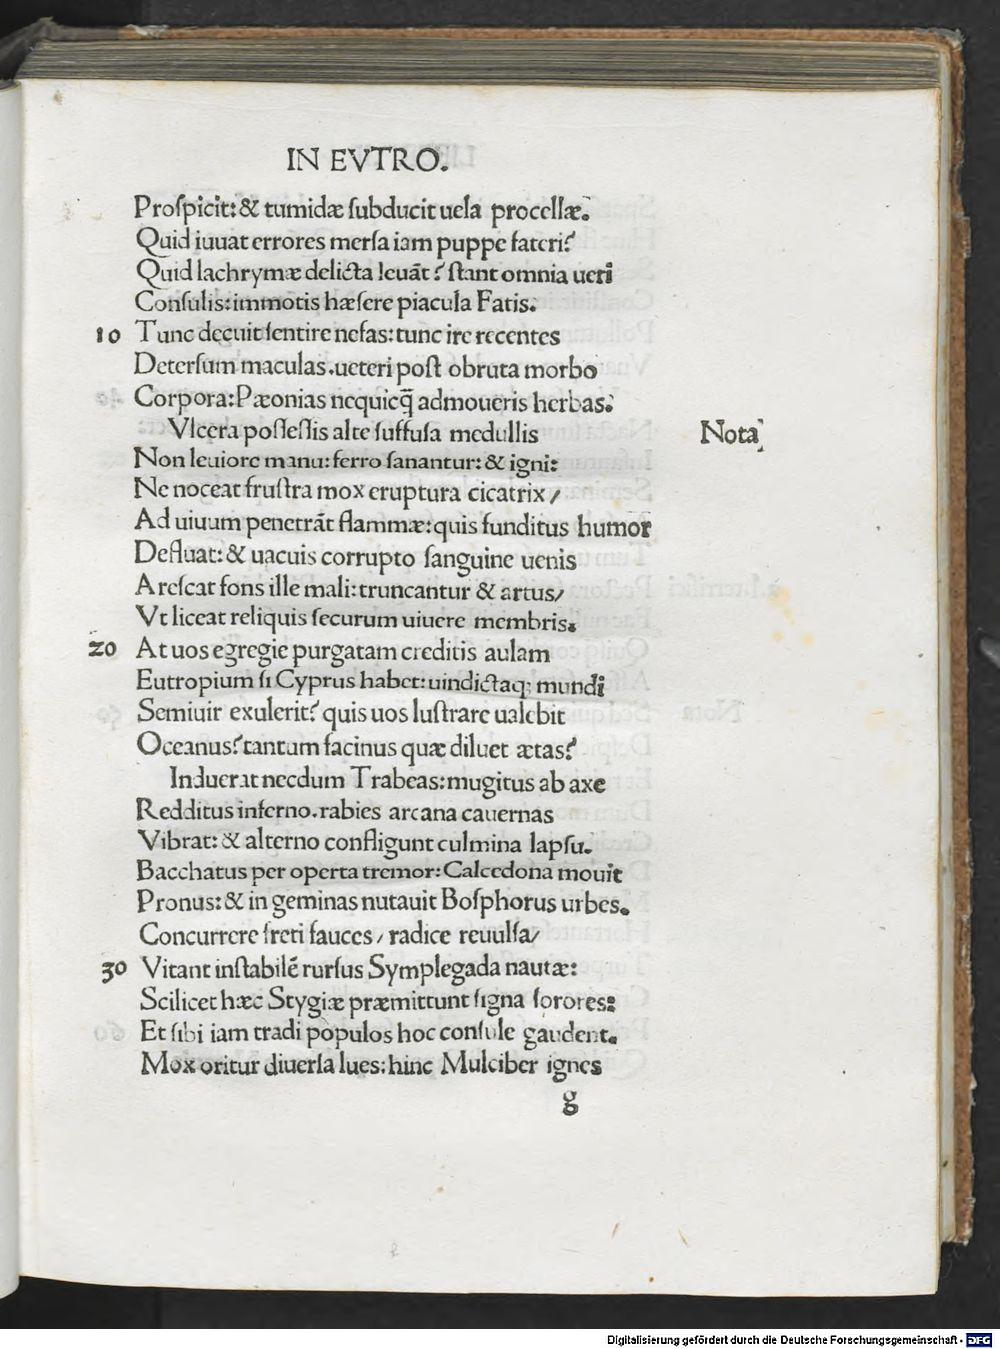 IN EVTRO.
Proſpicit: & tumidæ ſubducit uela procellæ.
Quid iuuat errores merſa iam puppe fateri?
Quid lachrymæ delicta leuāt? ſtant omnia ueri
Conſulis: immotis hæſere piacula Fatis.
10 Tunc decuit ſentire nefas: tunc ire recentes
Deterſum maculas. ueteri poſt obruta morbo
Corpora: Pæonias nequicq̄ admoueris herbas.
Vlcera poſſeſſis alte ſuffuſa medullis Nota
Non leuiore manu: ferro ſanantur: & igni:
Ne noceat fruſtra mox eruptura cicatrix /
Ad uiuum penetrāt flammæ: quis funditus humor
Defluat: & uacuis corrupto ſanguine uenis
Areſcat fons ille mali: truncantur & artus/
Vt liceat reliquis ſecurum uiuere membris.
20 At uos egregie purgatam creditis aulam
Eutropium ſi Cyprus habet: uindictaq; mundi
Semiuir exulerit? quis uos luſtrare ualebit
Oceanus? tantum facinus quæ diluet ætas?
Induerat necdum Trabeas: mugitus ab axe
Redditus inferno. rabies arcana cauernas
Vibrat: & alterno confligunt culmina lapſu.
Bacchatus per operta tremor: Calcedona mouit
Pronus: & in geminas nutauit Boſphorus urbes.
Concurrere freti fauces / radice reuulſa/
30 Vitant inſtabilē rurſus Symplegada nautæ:
Scilicet hæc Stygiæ præmittunt ſigna ſorores:
Et ſibi iam tradi populos hoc conſule gaudent.
Mox oritur diuerſa lues: hinc Mulciber ignes
g
Digitalisierung gefördert durch die Deutsche Forschungsgemeinschaft - DFG